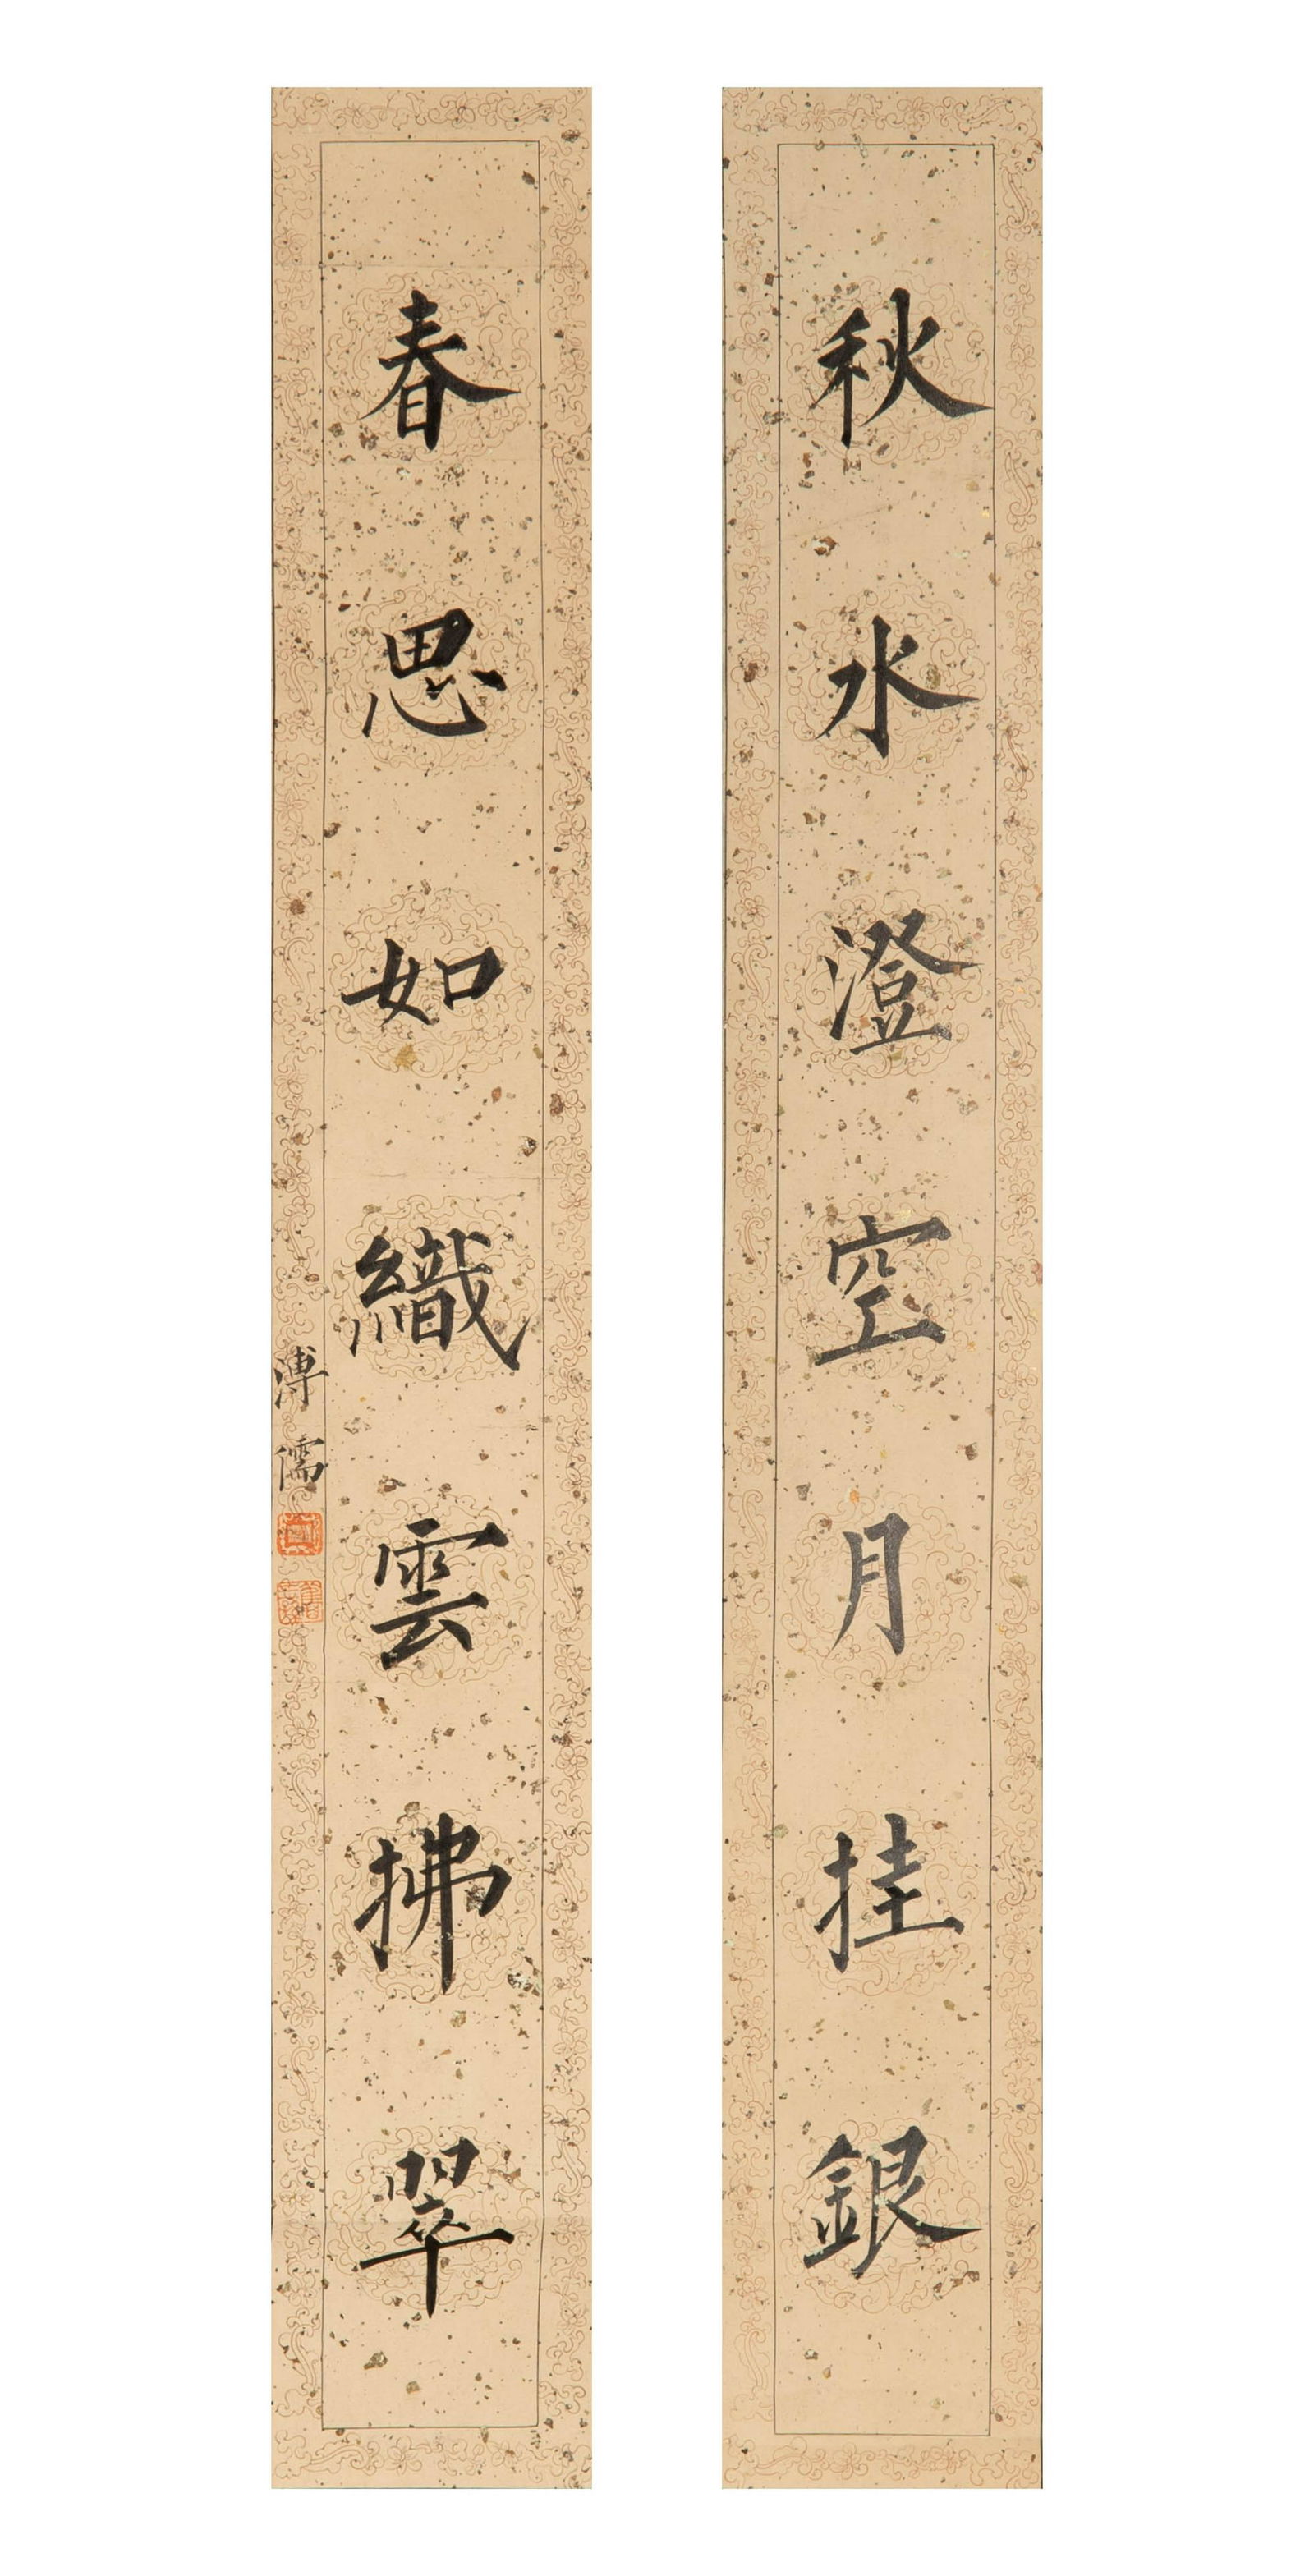 秋水澄空月挂銀
春思如織雲拂翠
溥儒